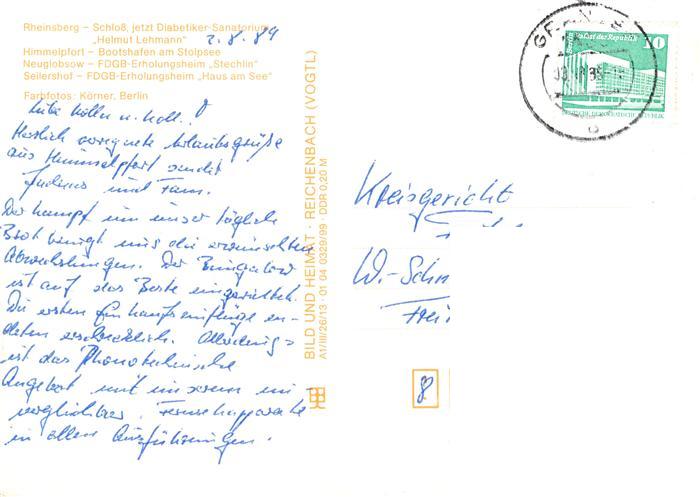 Rheinsberg – Schloß, jetzt Diabetiker-Sanatorium
„Helmut Lehmann"
2.8.89
Himmelpfort – Bootshafen am Stolpsee
Neuglobsow – FDGB-Erholungsheim „Stechlin"
Seilershof – FDGB-Erholungsheim „Haus am See"
Farbfotos: Körner, Berlin
Herzlich verregnete Urlaubsgrüße
aus Himmelpfort sendet
und Fam.
Der Kampf um unser täglich
Brot bringt uns die erwünschten
Abwechslungen. Der Bungalow
ist auf das Beste eingerichtet.
Die ersten Einkaufseinflüge en-
deten erschrecklich. Allerdings
ist das Phonotechnische
Angebot mit unserem un-
vergleichbar. Fernsehapparate
in allen Ausführungen.
BILD UND HEIMAT · REICHENBACH (VOGTL)
A1/III/26/13 · 01 04 0329/99 · DDR 0,20 M
10
Palast der Republik
DEUTSCHE DEMOKRATISCHE REPUBLIK
Kreisgericht
W.-Schn
8